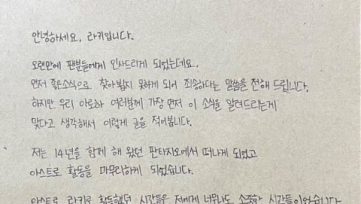 안녕하세요, 라키입니다.
오랜만에 팬분들에게 인사드리게 되었는데요,
먼저 좋은소식으로 찾아뵙지 못하게 되어 죄송하다는 말씀을 전해 드립니다.
하지만 우리 아로하 여러분께 가장 먼저 이 소식을 알려드리는게
맞다고 생각해서 이렇게 글을 적어봅니다.
저는 14년을 함께 해 왔던 판타지오에서 떠나게 되었고
아스트로 활동을 마무리하게 되었습니다.
아스트로 라키로 활동했던 시간들은 저에게 너무나도 소중한 시간들이었습니다